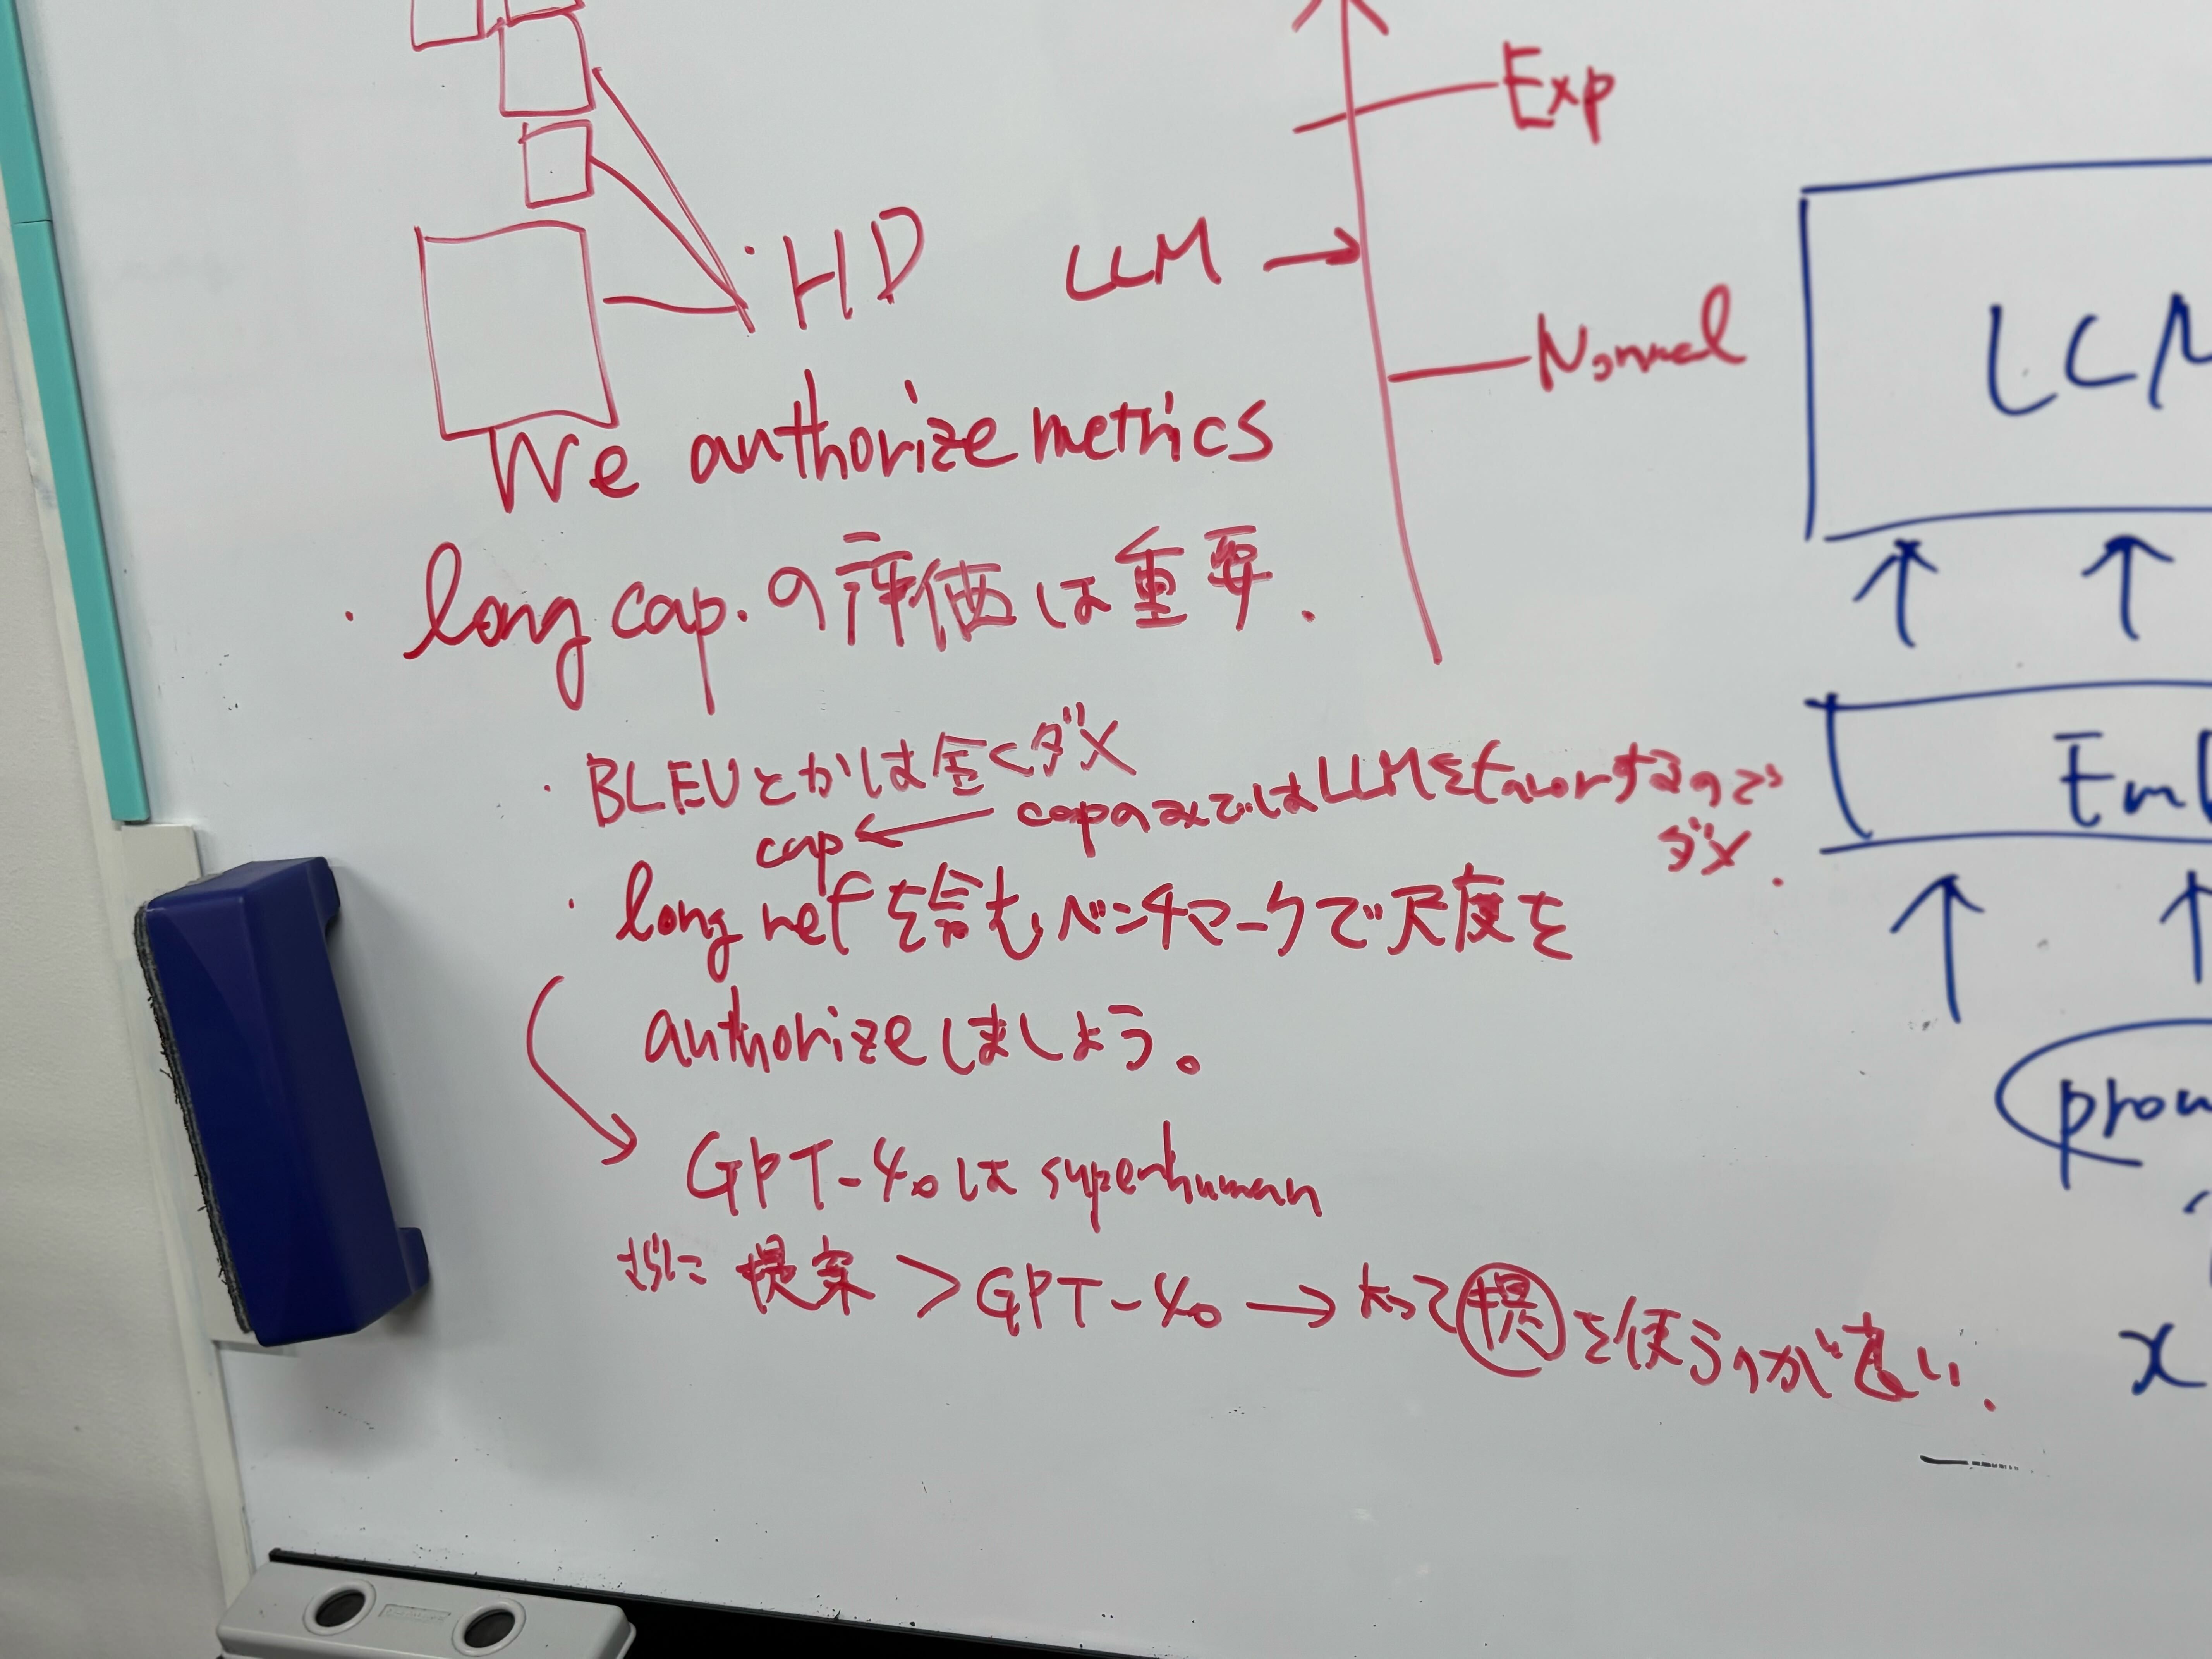 Exp
・HD
LLM →
Normal
We authorize metrics
・long cap. の評価は重要.
・BLEUとかは全くダメ
cap ← capのみではLLMをfavorするので
ダメ.
・long ref を含むベンチマークで尺度を
authorizeしましょう。
GPT-4oは superhuman
さらに 提案 > GPT-4o → 故って提を使うのが良い.
LCM
Emb
prom
x